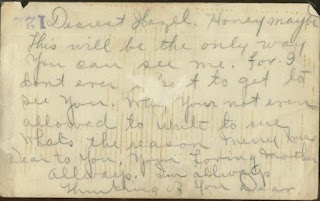 221
Dearest Hazel. Honey maybe
This will be the only way
You can see me. for I
dont ever to get to
see You. Your not even
allowed to write to me
Whats the reason
Dear to You, Your Loving Mother
Allways. I'm allways
Thinking of You Dear.